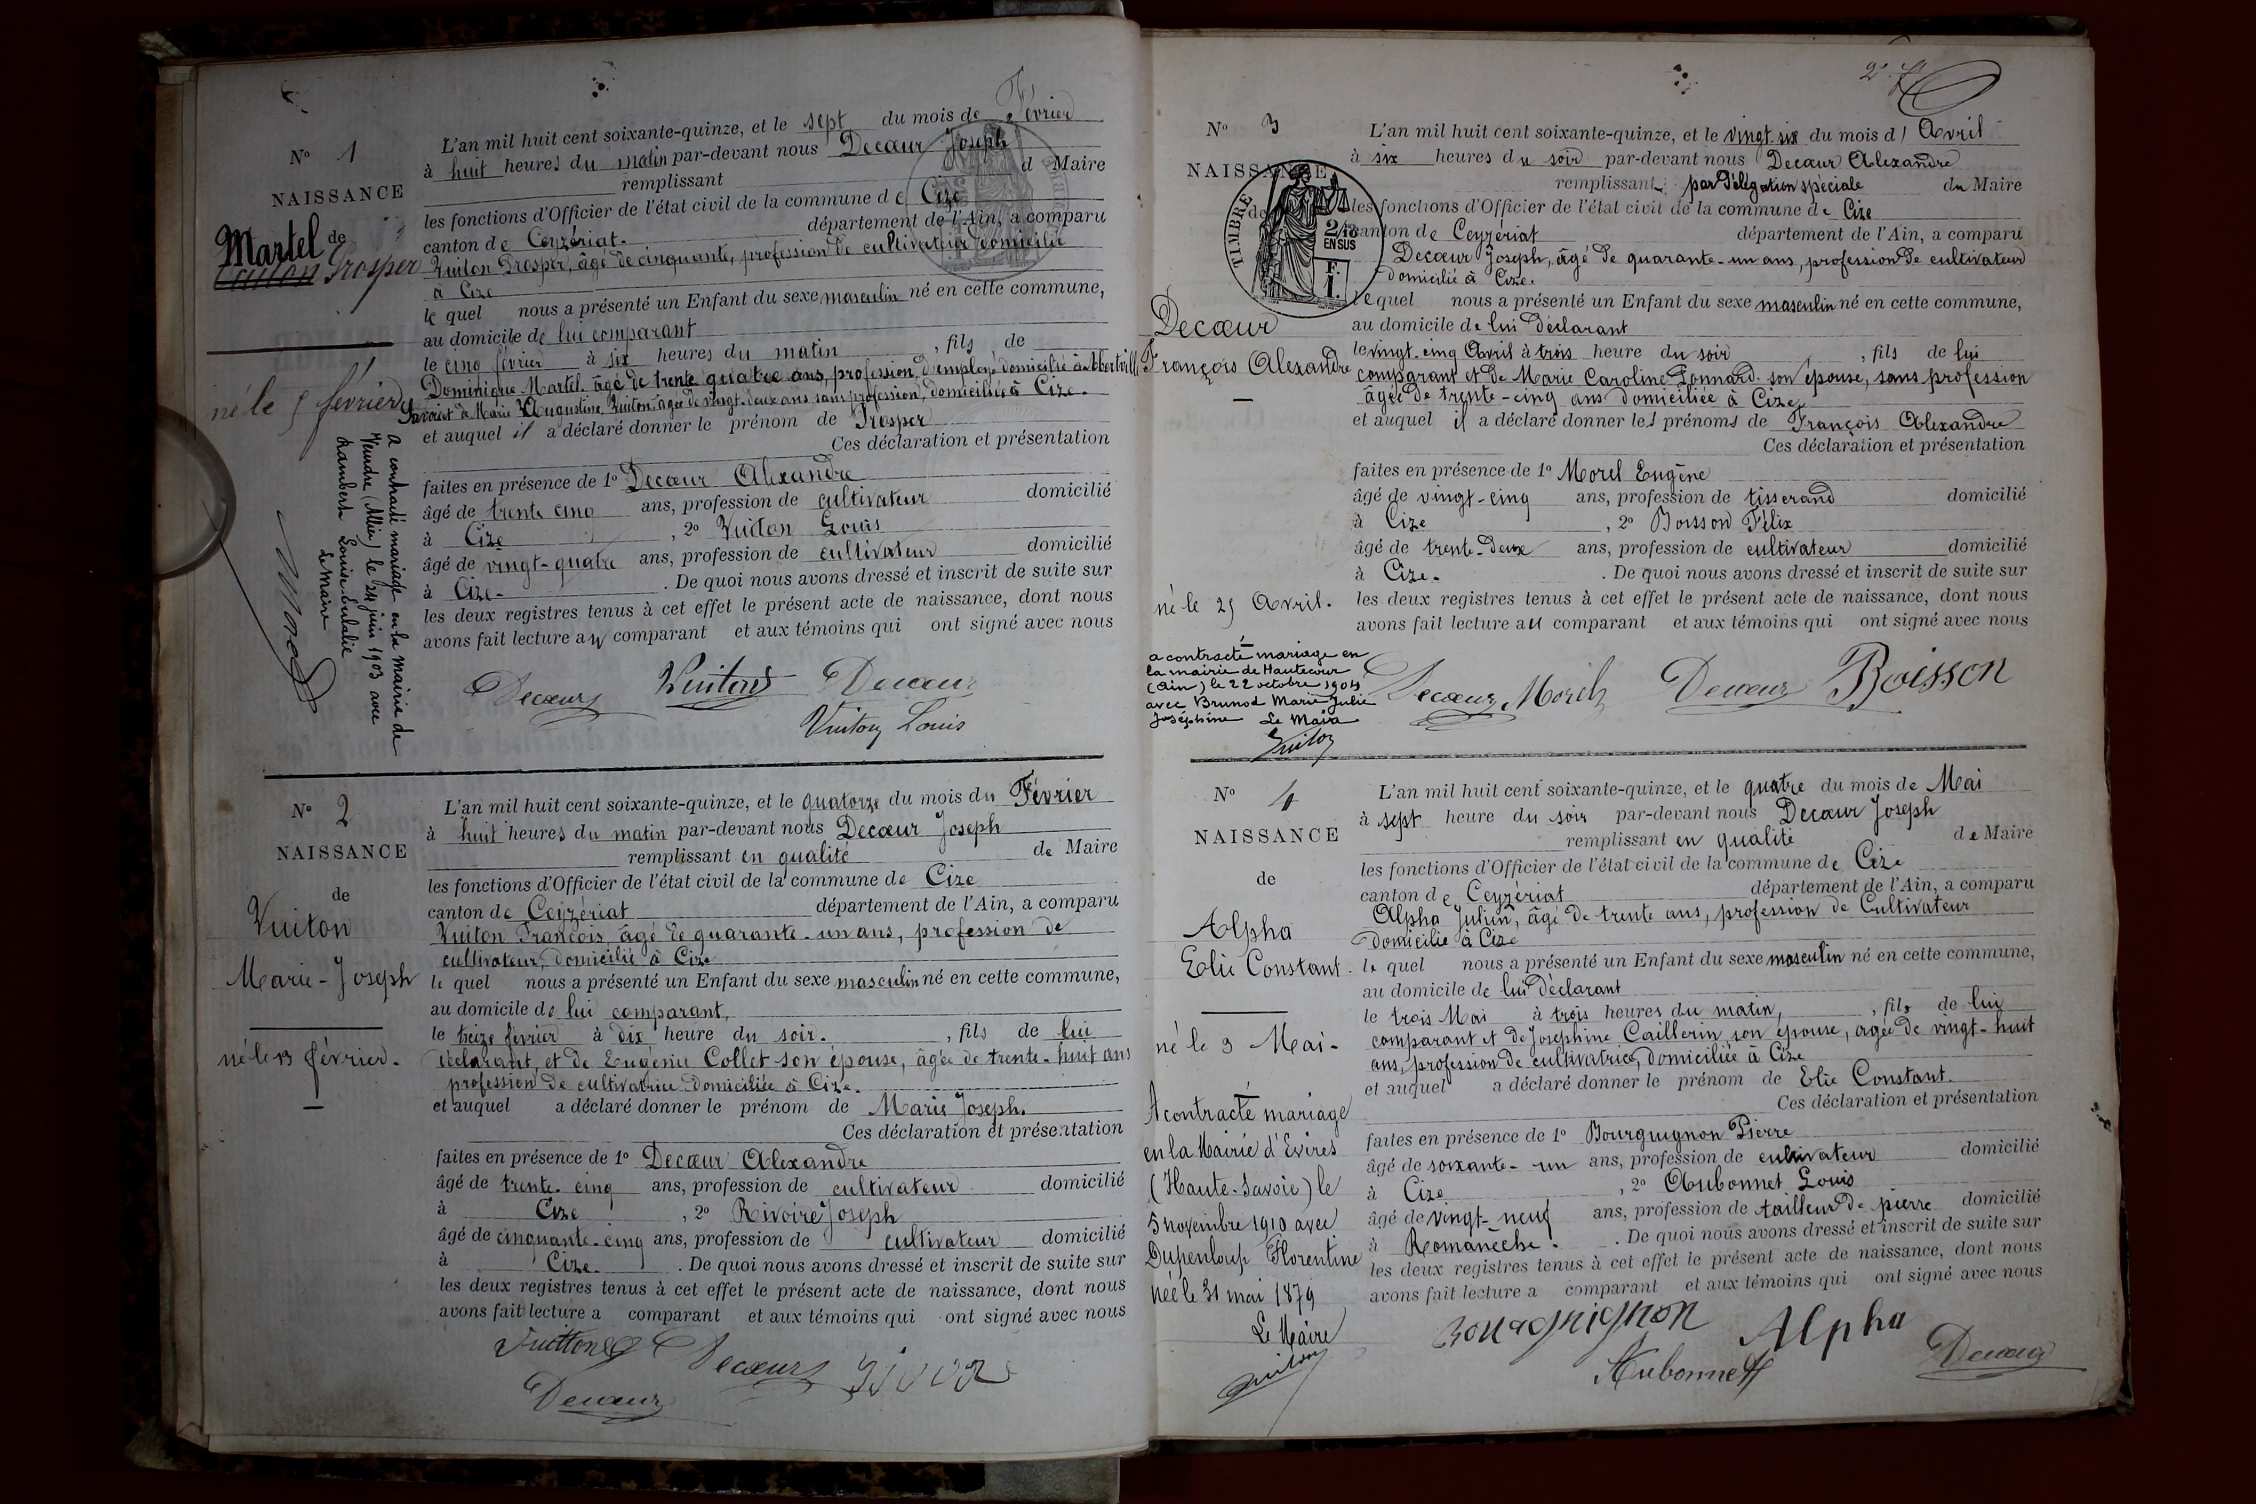 N° 1
NAISSANCE
de
Martel
Vuiton Prosper
né le 5 février
A contracté mariage en la mairie de
(Allier) le 24 juin 1903 avec
Louise Eulalie
Le Maire
L'an mil huit cent soixante-quinze, et le sept du mois de Février
à huit heures du matin par-devant nous Decœur Joseph
remplissant d Maire
les fonctions d'Officier de l'état civil de la commune de Cize
canton de Ceyzériat. département de l'Ain, a comparu
Vuiton Prosper, âgé de cinquante, profession de cultivateur domicilié
à Cize
le quel nous a présenté un Enfant du sexe masculin né en cette commune,
au domicile de lui comparant
le cinq février à six heures du matin, fils de
Dominique Martel âgé de trente quatre ans, profession d'employé domicilié à Albertville
Savoie et de Marie Augustine Vuiton, âgée de vingt-deux ans sans profession, domiciliée à Cize.
et auquel il a déclaré donner le prénom de Prosper
Ces déclaration et présentation
faites en présence de 1° Decœur Alexandre
âgé de trente cinq ans, profession de cultivateur domicilié
à Cize, 2° Vuiton Louis
âgé de vingt-quatre ans, profession de cultivateur domicilié
à Cize. De quoi nous avons dressé et inscrit de suite sur
les deux registres tenus à cet effet le présent acte de naissance, dont nous
avons fait lecture au comparant et aux témoins qui ont signé avec nous
Decœur Vuiton Decœur
Vuiton Louis
N° 2
NAISSANCE
de
Vuiton
Marie-Joseph
né le 13 février.
L'an mil huit cent soixante-quinze, et le quatorze du mois du Février
à huit heures du matin par-devant nous Decœur Joseph
remplissant en qualité de Maire
les fonctions d'Officier de l'état civil de la commune de Cize
canton de Ceyzériat département de l'Ain, a comparu
Vuiton François, âgé de quarante-un ans, profession de
cultivateur, domicilié à Cize
le quel nous a présenté un Enfant du sexe masculin né en cette commune,
au domicile de lui comparant,
le treize février à dix heure du soir., fils de lui
déclarant, et de Eugénie Collet son épouse, âgée de trente-huit ans
profession de cultivatrice domiciliée à Cize.
et auquel a déclaré donner le prénom de Marie Joseph.
Ces déclaration et présentation
faites en présence de 1° Decœur Alexandre
âgé de trente-cinq ans, profession de cultivateur domicilié
à Cize, 2° Rivoire Joseph
âgé de cinquante-cinq ans, profession de cultivateur domicilié
à Cize. De quoi nous avons dressé et inscrit de suite sur
les deux registres tenus à cet effet le présent acte de naissance, dont nous
avons fait lecture a comparant et aux témoins qui ont signé avec nous
Vuitton Decœur
Decœur
N° 3
NAISSANCE
de
TIMBRE
2/10
EN SUS
F.
1.
Decœur
François Alexandre
né le 25 Avril.
a contracté mariage en
la mairie de Hautecour
(Ain) le 22 octobre 1904
avec Brunod Marie Julie
Joséphine Le Maire
Vuiton
L'an mil huit cent soixante-quinze, et le vingt-six du mois d' Avril
à six heures du soir par-devant nous Decœur Alexandre
remplissant par délégation spéciale du Maire
les fonctions d'Officier de l'état civil de la commune de Cize
canton de Ceyzériat département de l'Ain, a comparu
Decœur Joseph, âgé de quarante-un ans, profession de cultivateur
domicilié à Cize.
lequel nous a présenté un Enfant du sexe masculin né en cette commune,
au domicile de lui déclarant
le vingt-cinq Avril à trois heure du soir, fils de lui
comparant et de Marie Caroline Fonnard son épouse, sans profession
âgée de trente-cinq ans domiciliée à Cize
et auquel il a déclaré donner les prénoms de François Alexandre
Ces déclaration et présentation
faites en présence de 1° Morel Eugène
âgé de vingt-cinq ans, profession de tisserand domicilié
à Cize, 2° Boisson Félix
âgé de trente-deux ans, profession de cultivateur domicilié
à Cize. De quoi nous avons dressé et inscrit de suite sur
les deux registres tenus à cet effet le présent acte de naissance, dont nous
avons fait lecture au comparant et aux témoins qui ont signé avec nous
Decœur Morel Decœur Boisson
N° 4
NAISSANCE
de
Alpha
Elie Constant.
né le 3 Mai-
A contracté mariage
en la Mairie d'Evires
(Haute-Savoie) le
5 novembre 1910 avec
Dupenloup Florentine
née le 31 mai 1879
Le Maire
Vuiton
L'an mil huit cent soixante-quinze, et le quatre du mois de Mai
à sept heure du soir par-devant nous Decœur Joseph
remplissant en qualité de Maire
les fonctions d'Officier de l'état civil de la commune de Cize
canton de Ceyzériat département de l'Ain, a comparu
Alpha Julien, âgé de trente ans, profession de Cultivateur
domicilié à Cize
le quel nous a présenté un Enfant du sexe masculin né en cette commune,
au domicile de lui déclarant
le trois Mai à trois heures du matin, , fils de lui
comparant et de Josephine Caillerin son épouse, agée de vingt-huit
ans, profession de cultivatrice, domiciliée à Cize
et auquel a déclaré donner le prénom de Elie Constant.
Ces déclaration et présentation
faites en présence de 1° Bourguignon Pierre
âgé de soixante-un ans, profession de cultivateur domicilié
à Cize, 2° Aubonnet Louis
âgé de vingt-neuf ans, profession de tailleur de pierre domicilié
à Romanèche. De quoi nous avons dressé et inscrit de suite sur
les deux registres tenus à cet effet le présent acte de naissance, dont nous
avons fait lecture a comparant et aux témoins qui ont signé avec nous
Bourguignon Alpha
Aubonnet Decœur